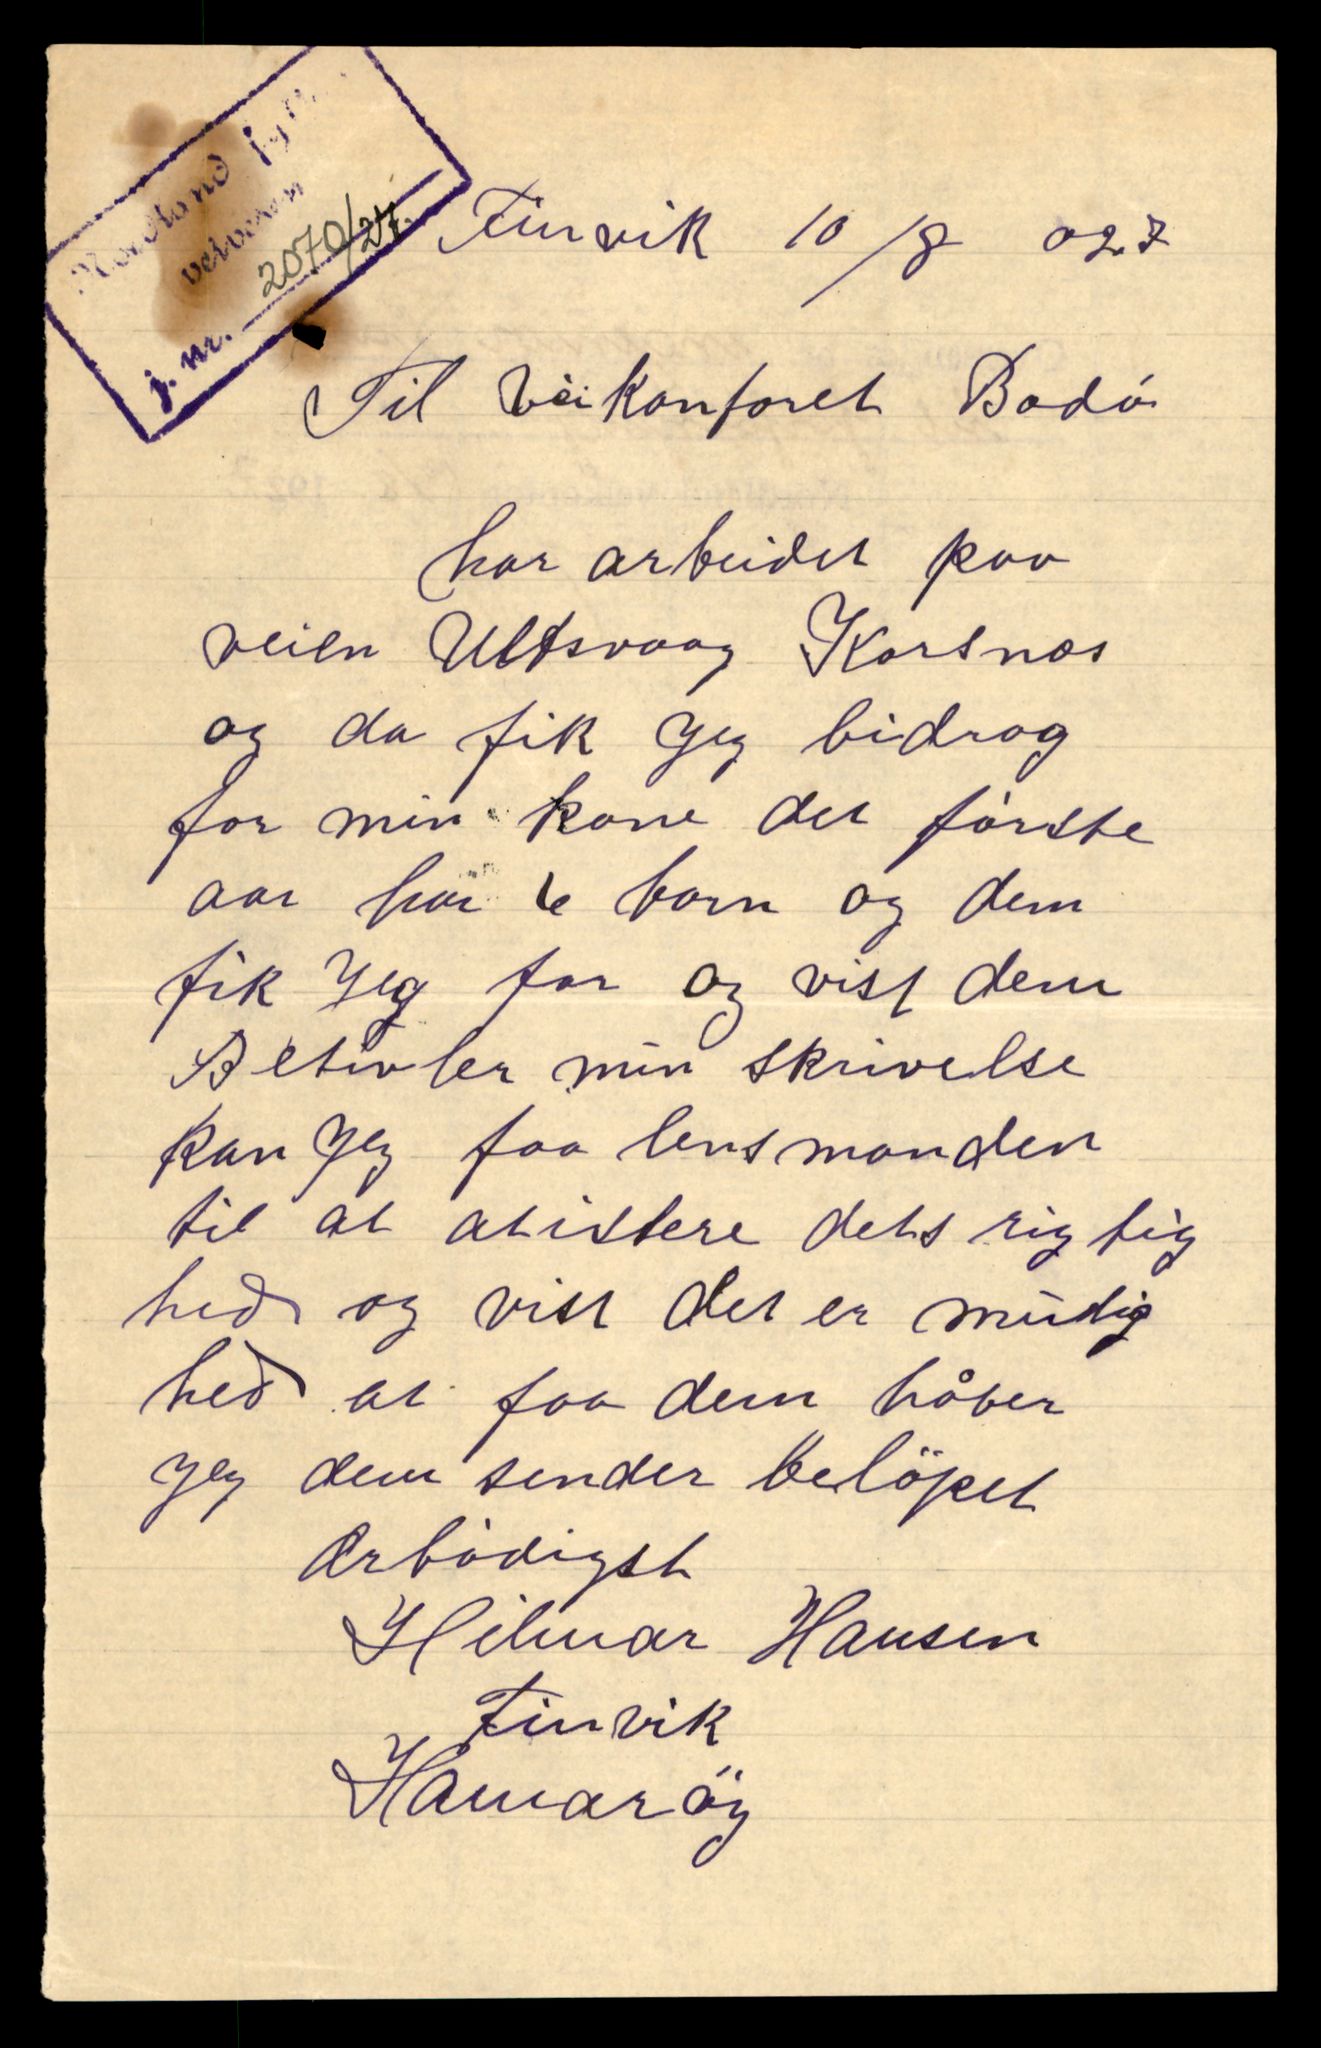 Nordland fylke
veivesen
j. nr. 2070/27.
Finvik 10/8 027
Til Veikonforet Bodø
har arbeidet paa
veien Ulvsvaag Korsnæs
og da fik Jeg bidrag
for min kone det første
aar har barn og dem
fik Jeg for og vist dem
Betivler min skrivelse
kan Jeg faa lensmanden
til at atistere dets rigtig
hed og vist det er mudig
hed at faa dem håber
Jeg dem sender belöpet
Ærbödigst
Hilmar Hansen
Finvik
Hamaröy